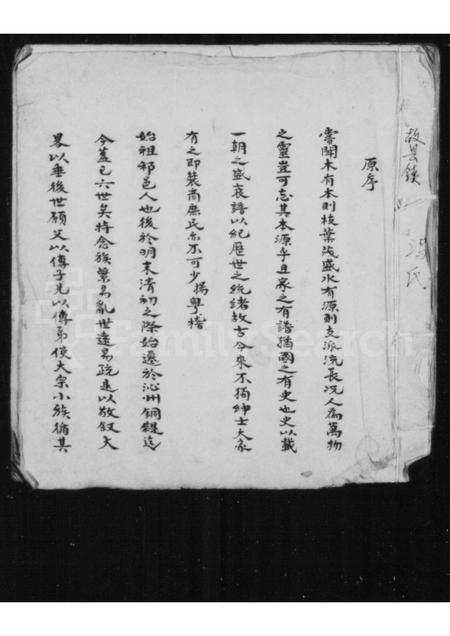 故县鎮
馮氏
原序
嘗聞木有本則枝葉茂盛水有源則支派流長况人為萬物
之靈豈可忘其本源乎且家之有譜猶國之有史也史以載
一朝之盛衰譜以紀歷世之統緒故古今來不獨紳士大家
有之即裝商庶民亦不可少焉粤稽
始祖祁邑人也後於明末清初之際始遷於沁州銅鍉迄
今蓋已六世矣特念族繁易亂世遠易疏是以敬叙大
畧以垂後世願父以傳子兄以傳弟使大宗小族循其
FamilySearch